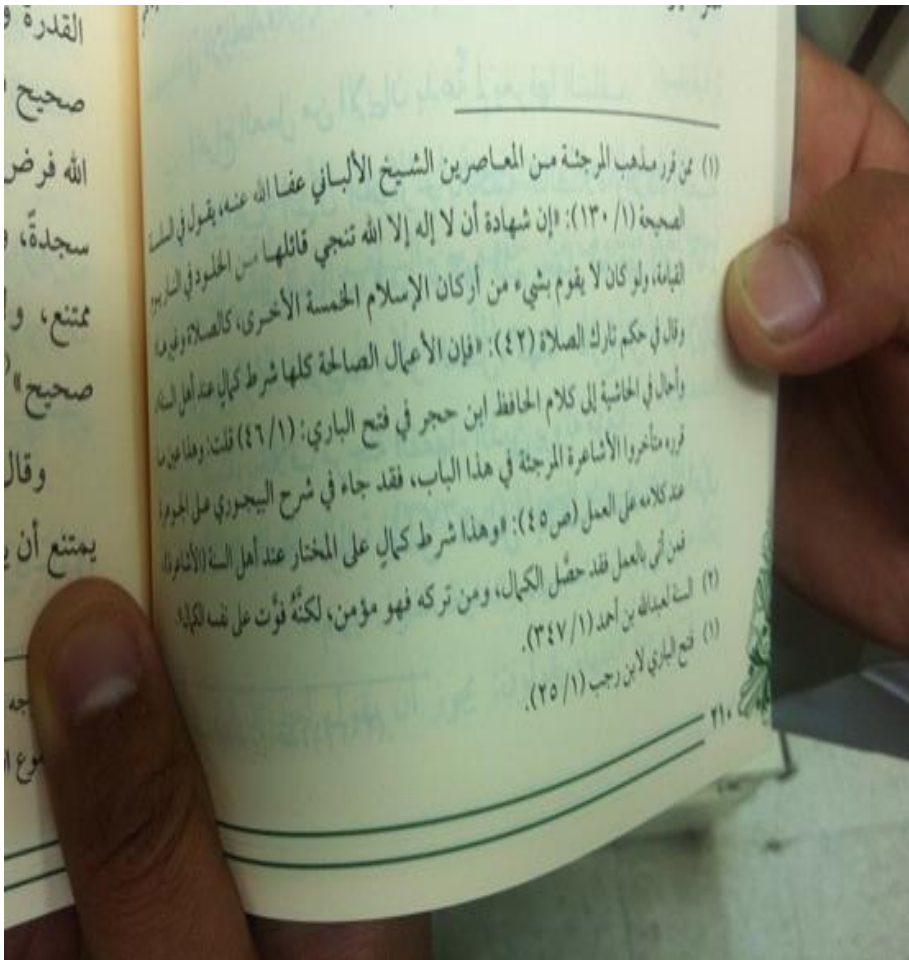 (١) ممن قرر مذهب المرجئة من المعاصرين الشيخ الألباني عفا الله عنه، يقول في السلسلة
الصحيحة (١/ ١٣٠): «إن شهادة أن لا إله إلا الله تنجي قائلها من الخلود في النار يوم
القيامة، ولو كان لا يقوم بشيء من أركان الإسلام الخمسة الأخرى، كالصلاة وغيرها»
وقال في حكم تارك الصلاة (٤٢): «فإن الأعمال الصالحة كلها شرط كمال عند أهل السنة»
وأحال في الحاشية إلى كلام الحافظ ابن حجر في فتح الباري: (١/ ٤٦) قلت: وهذا عين ما
قرره متأخروا الأشاعرة المرجئة في هذا الباب، فقد جاء في شرح البيجوري على الجوهرة
عند كلامه على العمل (ص٤٥): «وهذا شرط كمالٍ على المختار عند أهل السنة (الأشاعرة)،
فمن أتى بالعمل فقد حصَّل الكمال، ومن تركه فهو مؤمن، لكنَّهُ فوَّت على نفسه الكمال».
(٢) السنة لعبدالله بن أحمد (١/ ٣٤٧).
(١) فتح الباري لابن رجب (١/ ٢٥).
٢١٠
القدرة
صحيح
الله فرض
سجدةً،
ممتنع،
صحيح»
وقال
يمتنع أن